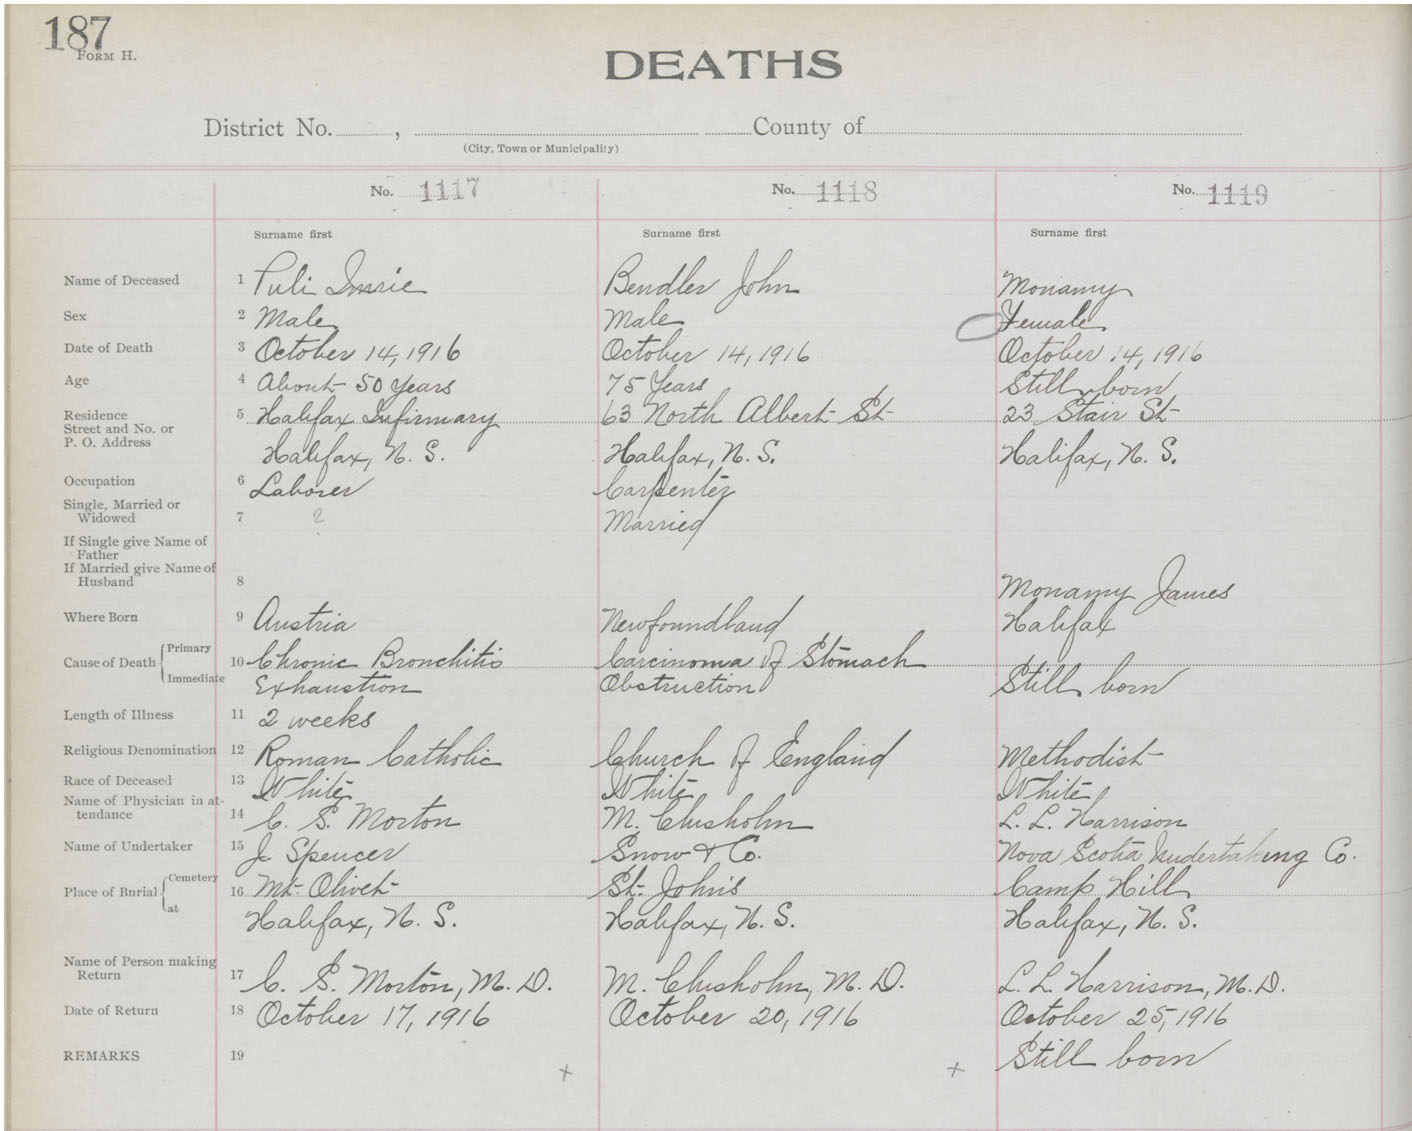 187
FORM H.
DEATHS
District No. , County of
(City, Town or Municipality)
No. 1117 No. 1118 No. 1119
Surname first Surname first Surname first
Name of Deceased 1 Puli Imrie Bendler John Monamy
Sex 2 Male Male Female
Date of Death 3 October 14, 1916 October 14, 1916 October 14, 1916
Age 4 About 50 Years 75 Years Still born
Residence
Street and No. or 5 Halifax Infirmary 63 North Albert St 23 Stair St
P. O. Address Halifax, N. S. Halifax, N. S. Halifax, N. S.
Occupation 6 Laborer Carpenter
Single, Married or
Widowed 7 ? Married
If Single give Name of
Father
If Married give Name of
Husband 8 Monamy James
Where Born 9 Austria Newfoundland Halifax
Cause of Death { Primary 10 Chronic Bronchitis Carcinoma of Stomach
Immediate Exhaustion Obstruction Still born
Length of Illness 11 2 weeks
Religious Denomination 12 Roman Catholic Church of England Methodist
Race of Deceased 13 White White White
Name of Physician in at-
tendance 14 C. S. Morton M. Chisholm L. L. Harrison
Name of Undertaker 15 J. Spencer Snow & Co. Nova Scotia Undertaking Co.
Place of Burial { Cemetery 16 Mt. Olivet St. John's Camp Hill
at Halifax, N. S. Halifax, N. S. Halifax, N. S.
Name of Person making
Return 17 C. S. Morton, M. D. M. Chisholm, M. D. L. L. Harrison, M. D.
Date of Return 18 October 17, 1916 October 20, 1916 October 25, 1916
REMARKS 19 Still born
+ +